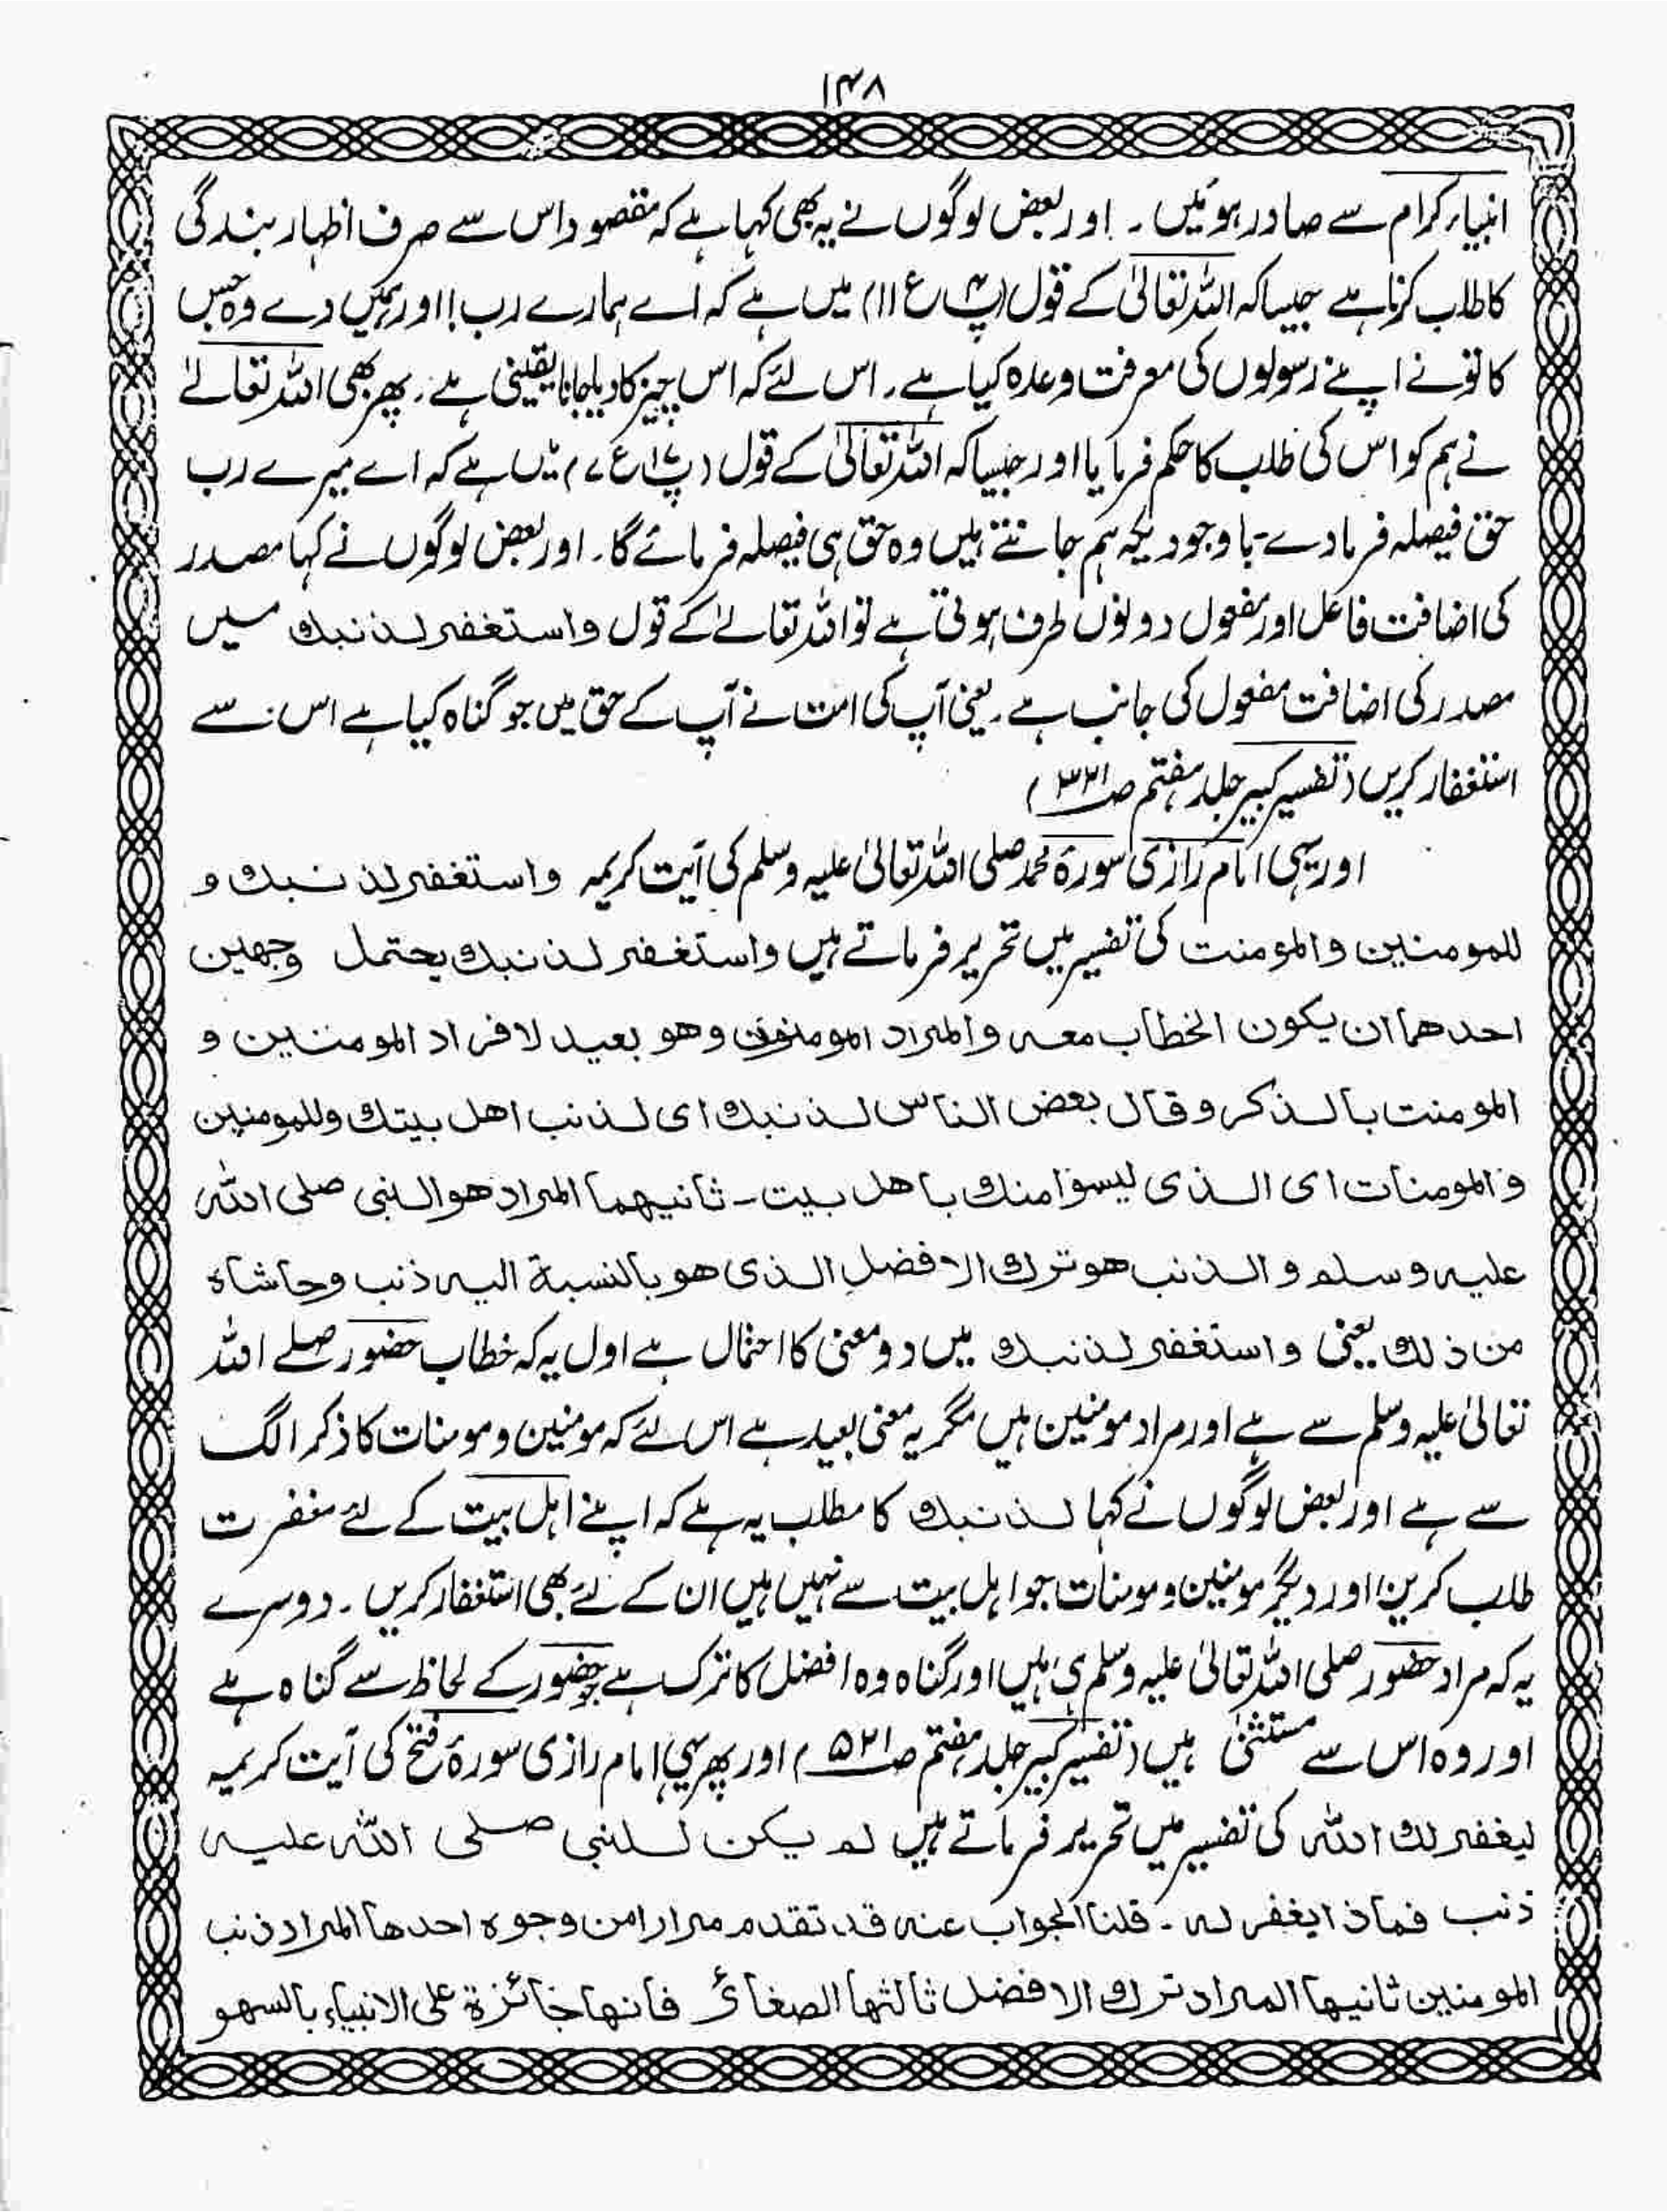 ۱۴۸
انبیاء کرام سے صادر ہوئیں ۔ اور بعض لوگوں نے یہ بھی کہا ہے کہ مقصود اس سے صرف اظہار بندگی
کا طلب کرنا ہے جیسا کہ اللہ تعالیٰ کے قول (پ۴ ع ۱۱) میں ہے کہ اے ہمارے رب! اور ہمیں دے وہ جس
کا تو نے اپنے رسولوں کی معرفت وعدہ کیا ہے۔ اس لئے کہ اس چیز کا دیا جانا یقینی ہے۔ پھر بھی اللہ تعالےٰ
نے ہم کو اس کی طلب کا حکم فرمایا اور جیسا کہ اللہ تعالیٰ کے قول (پ۱۷ ع ۷) میں ہے کہ اے میرے رب
حق فیصلہ فرمادے۔ باوجودیکہ ہم جانتے ہیں وہ حق ہی فیصلہ فرمائے گا۔ اور بعض لوگوں نے کہا مصدر
کی اضافت فاعل اور مفعول دونوں طرف ہوتی ہے تو اللہ تعالےٰ کے قول واستغفر لذنبك میں
مصدر کی اضافت مفعول کی جانب ہے۔ یعنی آپ کی امت نے آپ کے حق میں جو گناہ کیا ہے اس سے
استغفار کریں (تفسیر کبیر جلد ہفتم ص۳۲۱)
اور یہی امام رازی سورۂ محمد صلی اللہ تعالیٰ علیہ وسلم کی آیت کریمہ واستغفر لذنبك و
للمومنین والمومنت کی تفسیر میں تحریر فرماتے ہیں واستغفر لذنبك يحتمل وجهين
احدهما ان يكون الخطاب معه والمراد المومنون وهو بعيد لافراد المومنين و
المومنت بالذكر وقال بعض الناس لذنبك اى لذنب اهل بيتك وللمومنين
والمومنات اى الذى ليسوا منك باهل بيت۔ ثانيهما المراد هو النبى صلى الله
عليه وسلم والذنب هو ترك الافضل الذى هو بالنسبة اليه ذنب وحاشاه
من ذلك یعنی واستغفر لذنبك میں دو معنی کا احتمال ہے اول یہ کہ خطاب حضور صلے اللہ
تعالیٰ علیہ وسلم سے ہے اور مراد مومنین ہیں مگر یہ معنی بعید ہے اس لئے کہ مومنین و مومنات کا ذکر الگ
سے ہے اور بعض لوگوں نے کہا لذنبك کا مطلب یہ ہے کہ اپنے اہل بیت کے لئے مغفرت
طلب کریں اور دیگر مومنین و مومنات جو اہل بیت سے نہیں ہیں ان کے لئے بھی استغفار کریں ۔ دوسرے
یہ کہ مراد حضور صلی اللہ تعالیٰ علیہ وسلم ہی ہیں اور گناہ وہ افضل کا ترک ہے جو حضور کے لحاظ سے گناہ ہے
اور وہ اس سے مستثنیٰ ہیں (تفسیر کبیر جلد ہفتم ص۵۲۱) اور پھر یہی امام رازی سورۂ فتح کی آیت کریمہ
ليغفر لك الله کی تفسیر میں تحریر فرماتے ہیں لم يكن للنبى صلى الله عليه
ذنب فماذا يغفر له ۔ قلنا الجواب عنه قد تقدم مرارا من وجوه احدها المراد ذنب
المومنين ثانيها المراد ترك الافضل ثالثها الصغائر فانها جائزة على الانبياء بالسهو